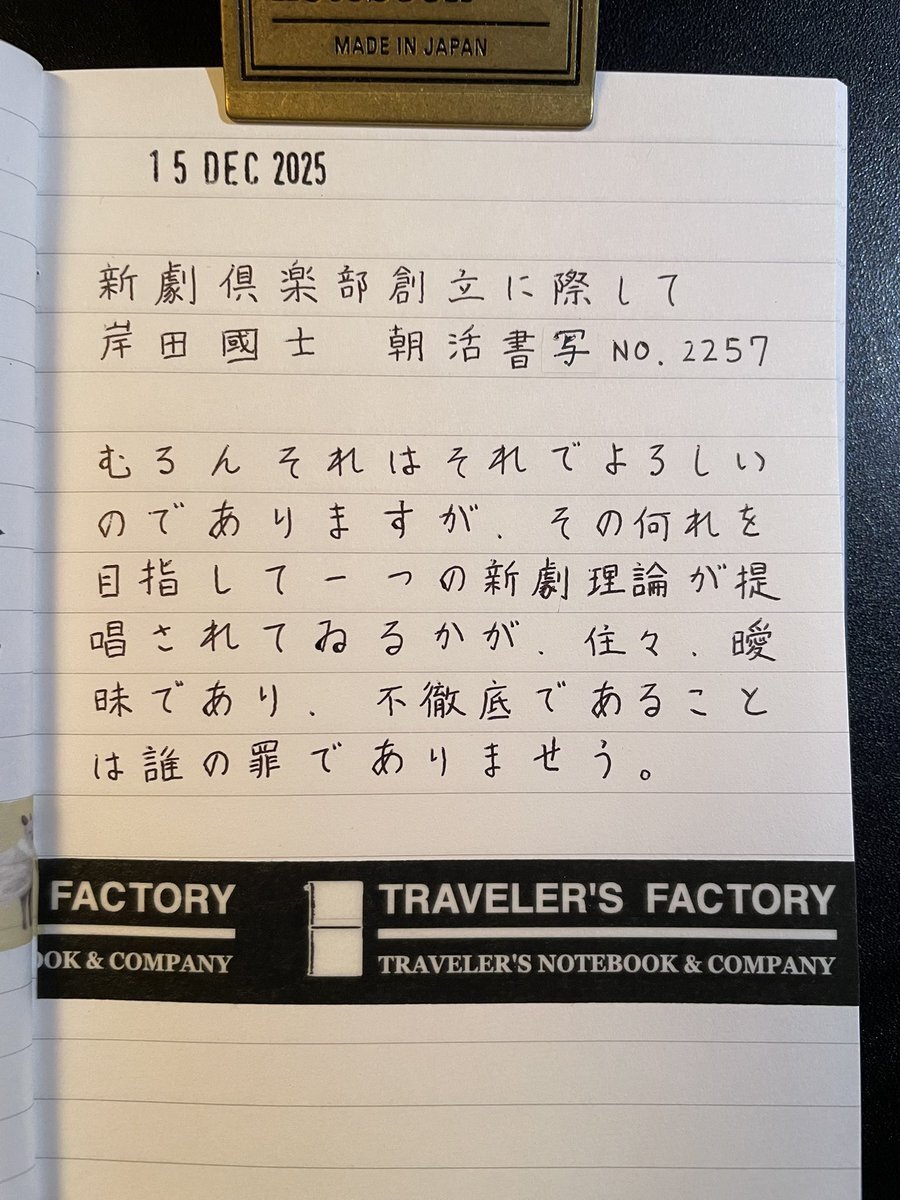 MADE IN JAPAN
15 DEC 2025
新劇倶楽部創立に際して
岸田國士 朝活書写 NO. 2257
むろんそれはそれでよろしい
のでありますが、その何れを
目指して一つの新劇理論が提
唱されてゐるかが、往々、曖
昧であり、不徹底であること
は誰の罪でありませう。
FACTORY TRAVELER'S FACTORY
OOK & COMPANY TRAVELER'S NOTEBOOK & COMPANY